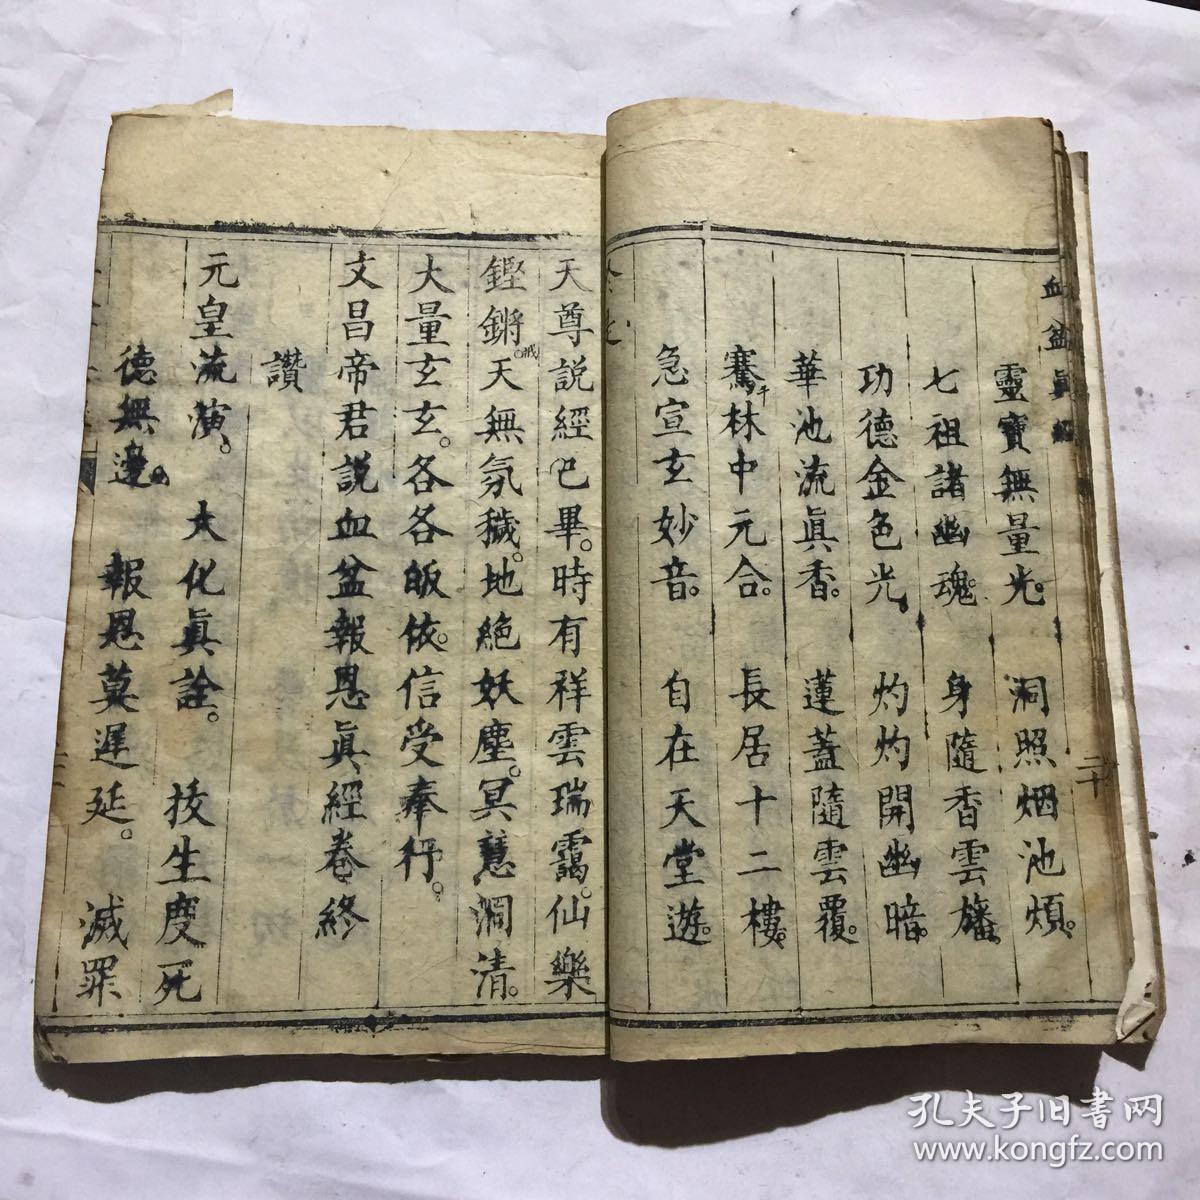 血盆眞經
二十
靈寶無量光。洞照烟池煩。
七祖諸幽魂。身隨香雲旛。
功德金色光。灼灼開幽暗。
華池流眞香。蓮蓋隨雲覆。
騫千林中元合。長居十二樓。
急宣玄妙音。自在天堂遊。
天尊説經已畢。時有祥雲瑞靄。仙樂
鏗鏘。天無氛穢。地絶妖塵。冥慧洞清。
大量玄玄。各各皈依。信受奉行。
文昌帝君説血盆報恩眞經卷終
讚
元皇流演。大化眞詮。接生度死
德無邊。報恩莫遲延。滅罪
孔夫子旧書网
www.kongfz.com